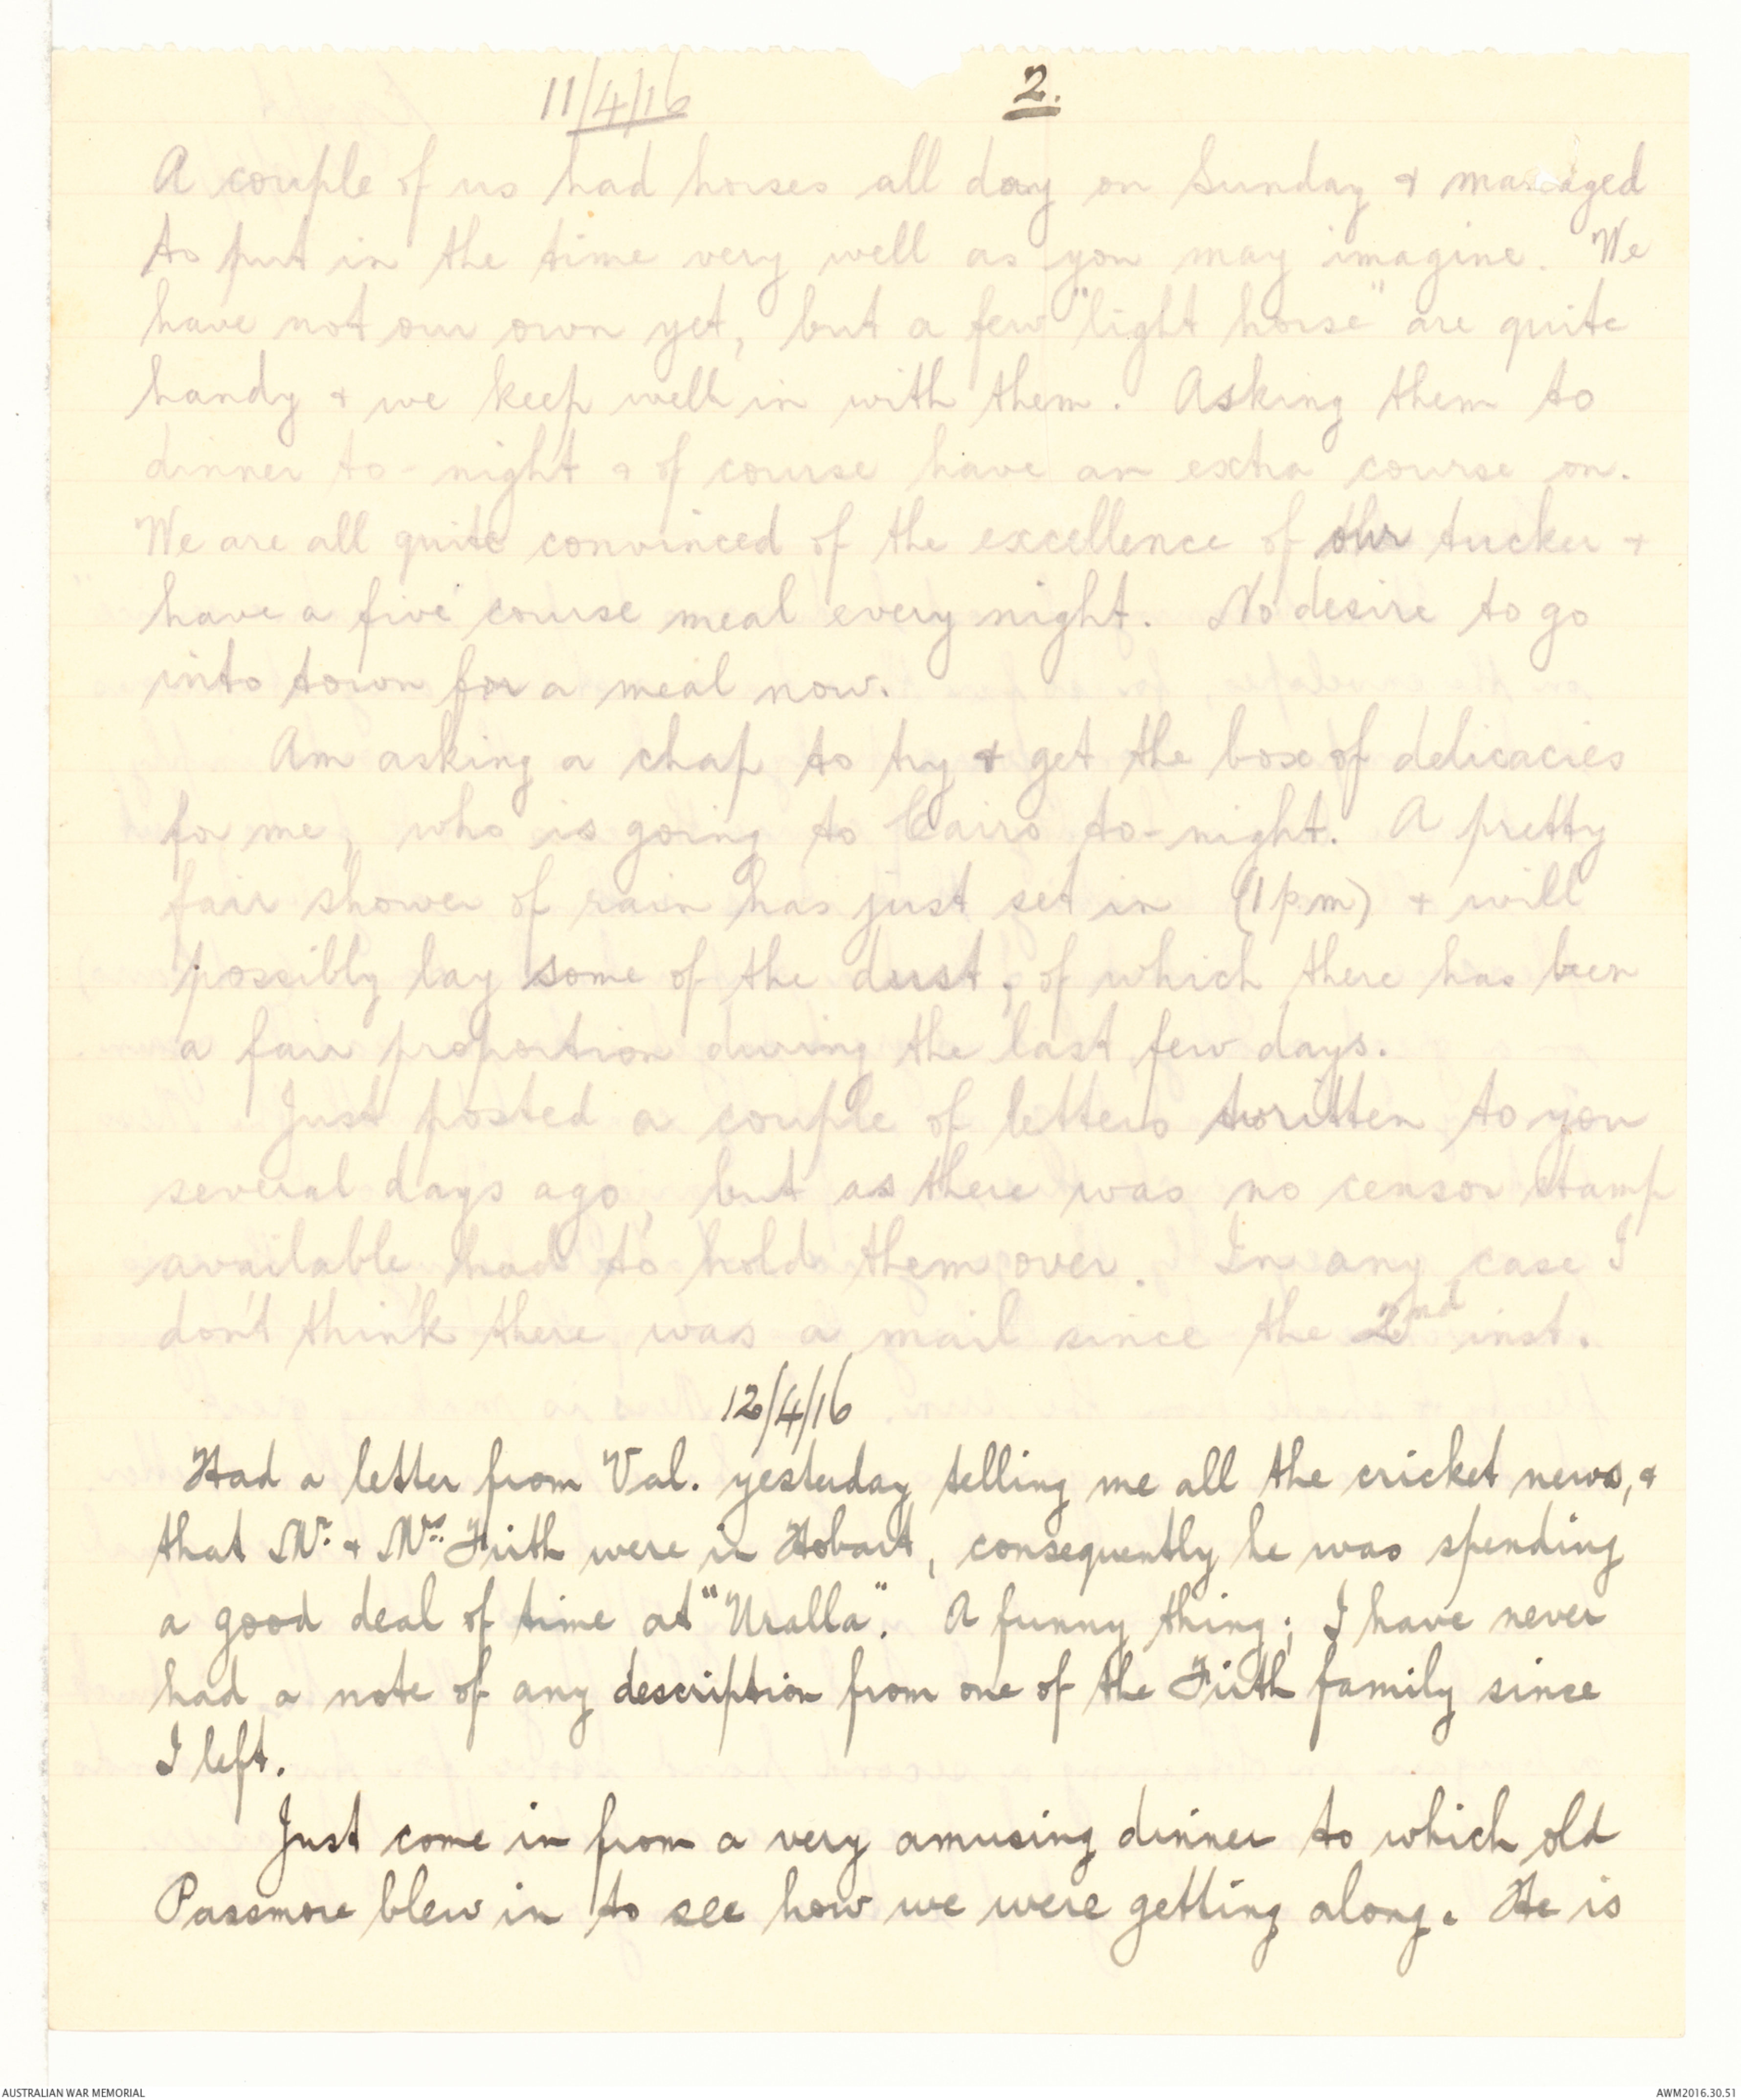 11/4/16 2.
A couple of us had horses all day on Sunday & managed
to put in the time very well as you may imagine. We
have not our own yet, but a few "light horse" are quite
handy & we keep well in with them. Asking them to
dinner to-night & of course have an extra course on.
We are all quite convinced of the excellence of our tucker &
have a five course meal every night. No desire to go
into town for a meal now.
Am asking a chap to try & get the box of delicacies
for me, who is going to Cairo to-night. A pretty
fair shower of rain has just set in (1pm) & will
possibly lay some of the dust, of which there has been
a fair proportion during the last few days.
Just posted a couple of letters written to you
several days ago, but as there was no censor stamp
available, had to hold them over. In any case I
don't think there was a mail since the 2nd inst.
12/4/16
Had a letter from Val. yesterday telling me all the cricket news, &
that Mr. & Mrs. Firth were in Hobart, consequently he was spending
a good deal of time at "Uralla". A funny thing; I have never
had a note of any description from one of the Firth family since
I left.
Just come in from a very amusing dinner to which old
Passmore blew in to see how we were getting along. He is
AUSTRALIAN WAR MEMORIAL AWM2016.30.51